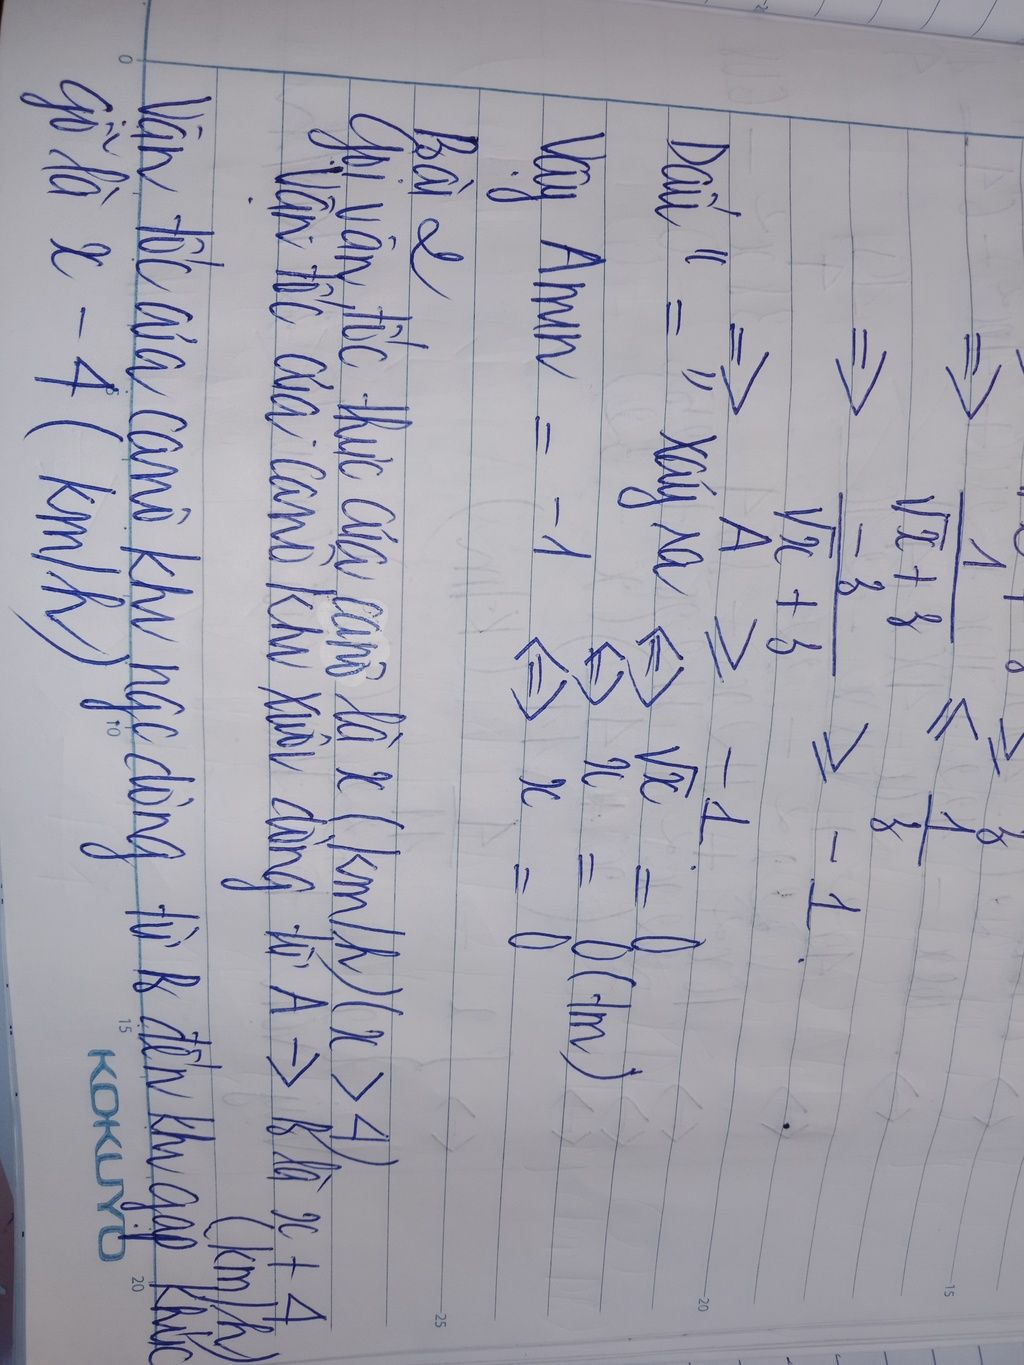 ⇒ 1/(√x + 3) ≤ 1/3
⇒ -3/(√x + 3) ≥ -1
⇒ A ≥ -1
Dấu " = " xảy ra ⇔ √x = 0
⇔ x = 0 (tm)
Vậy Amin = -1 ⇔ x = 0
Bài 2
Gọi vận tốc thực của canô là x (km/h) (x > 4)
Vận tốc của canô khi xuôi dòng từ A → B là x + 4
(km/h)
Vận tốc của canô khi ngc dòng từ B đến khi gặp khúc
gỗ là x - 4 (km/h)
KOKUYO
0
10
15
20
25
20
15